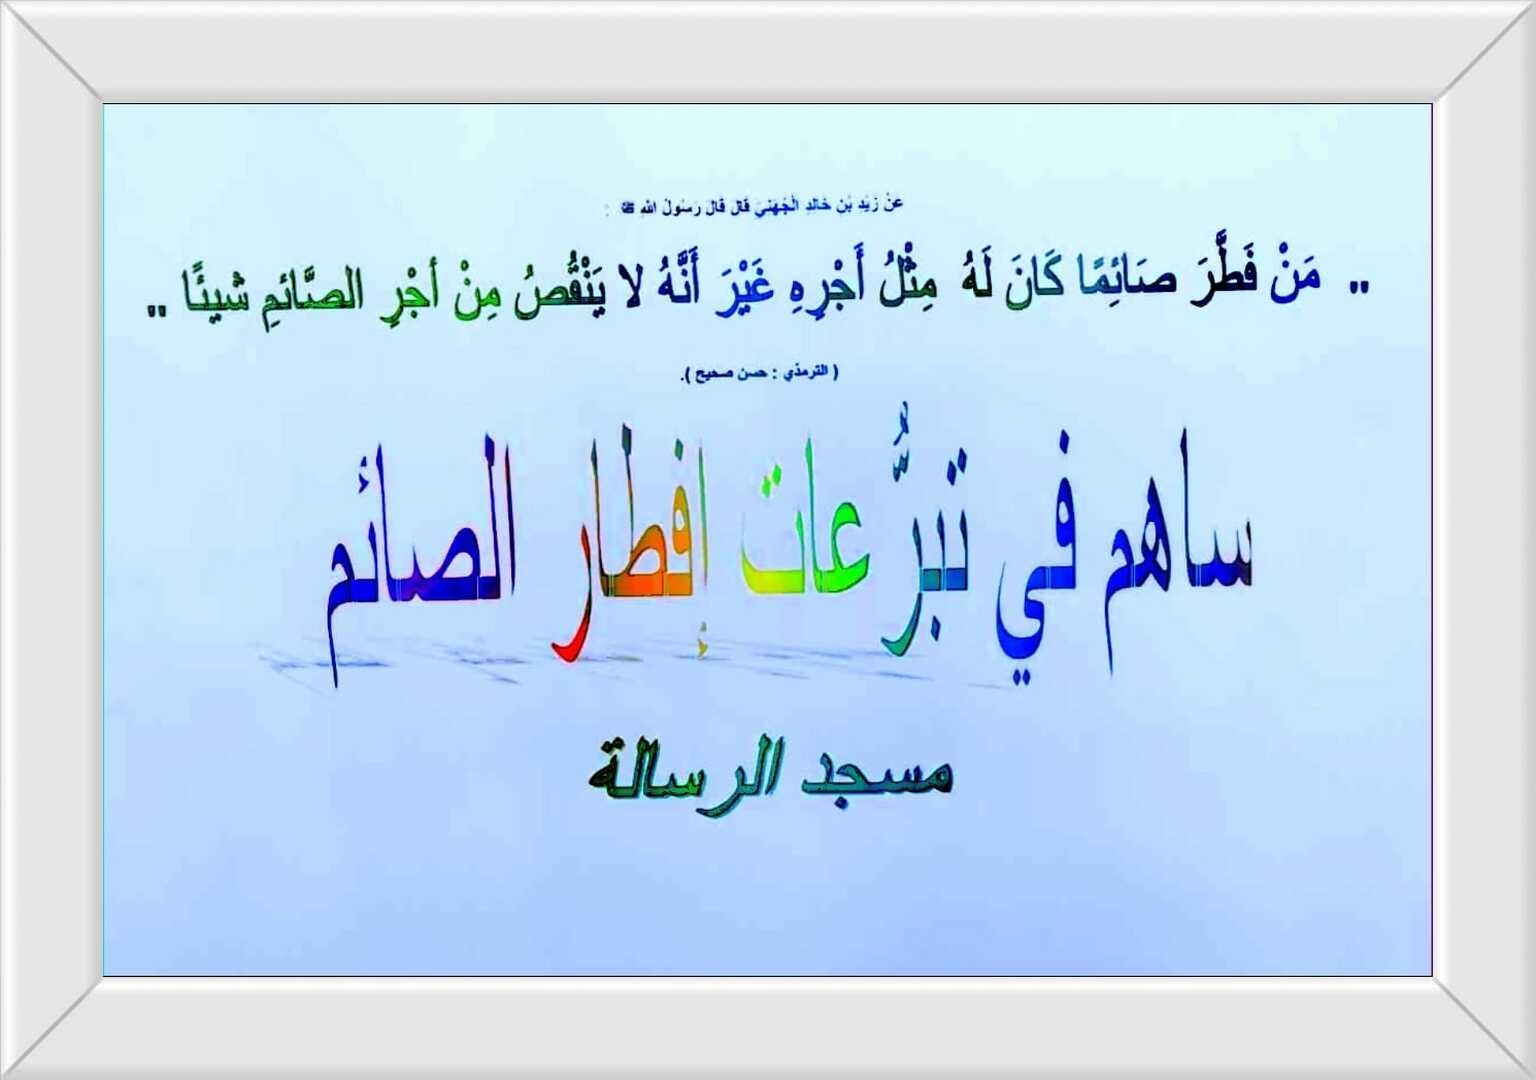 عَنْ زَيْدِ بْنِ خَالِدِ الْجُهَنِيِّ قَالَ قَالَ رَسُولُ اللهِ ﷺ :
" مَنْ فَطَّرَ صَائِمًا كَانَ لَهُ مِثْلُ أَجْرِهِ غَيْرَ أَنَّهُ لا يَنْقُصُ مِنْ أجْرِ الصَّائمِ شيئًا "
( الترمذي : حسن صحيح ).
ساهم في تبرُّعات إفطار الصائم
مسجد الرسالة